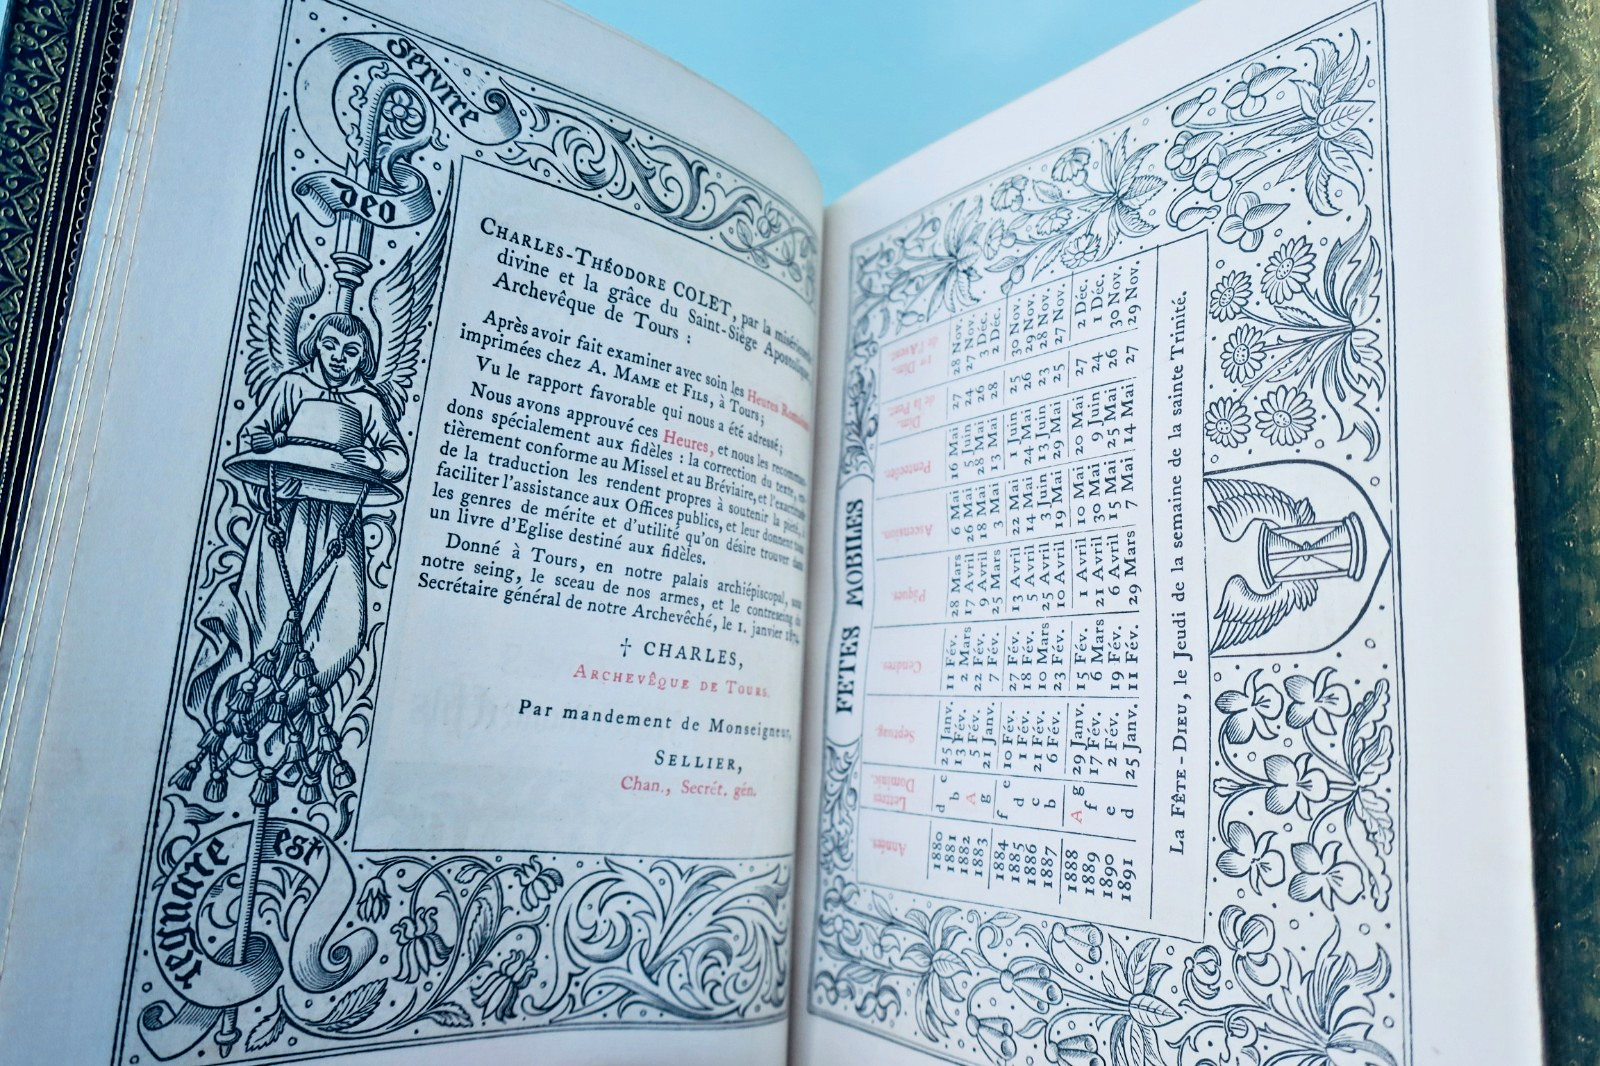 Servire
Deo
regnare
est
CHARLES-THÉODORE COLET, par la miséricorde
divine et la grâce du Saint-Siège Apostolique,
Archevêque de Tours :
Après avoir fait examiner avec soin les Heures Romaines
imprimées chez A. MAME ET FILS, à Tours;
Vu le rapport favorable qui nous a été adressé;
Nous avons approuvé ces Heures, et nous les recomman-
dons spécialement aux fidèles : la correction du texte, en-
tièrement conforme au Missel et au Bréviaire, et l'exactitude
de la traduction les rendent propres à soutenir la piété, à
faciliter l'assistance aux Offices publics, et leur donnent tous
les genres de mérite et d'utilité qu'on désire trouver dans
un livre d'Eglise destiné aux fidèles.
Donné à Tours, en notre palais archiépiscopal, sous
notre seing, le sceau de nos armes, et le contreseing du
Secrétaire général de notre Archevêché, le 1. janvier
† CHARLES,
ARCHEVÊQUE DE TOURS.
Par mandement de Monseigneur,
SELLIER,
Chan., Secrét. gén.
FETES MOBILES
Années. Lettres Dominic. Septuag. Cendres. Pâques. Ascension. Pentecôte. Dim. de la Pent. Dim. de l'Avent.
1880 d c 25 Janv. 11 Fév. 28 Mars 6 Mai 16 Mai 27 28 Nov.
1881 b 13 Fév. 2 Mars 17 Avril 26 Mai 5 Juin 24 27 Nov.
1882 A 5 Fév. 22 Fév. 9 Avril 18 Mai 28 Mai 26 3 Déc.
1883 g 21 Janv. 7 Fév. 25 Mars 3 Mai 13 Mai 28 2 Déc.
1884 f e 10 Fév. 27 Fév. 13 Avril 22 Mai 1 Juin 25 30 Nov.
1885 d 1 Fév. 18 Fév. 5 Avril 14 Mai 24 Mai 26 29 Nov.
1886 c 21 Fév. 10 Mars 25 Avril 3 Juin 13 Juin 23 28 Nov.
1887 b 6 Fév. 23 Fév. 10 Avril 19 Mai 29 Mai 25 27 Nov.
1888 A g 29 Janv. 15 Fév. 1 Avril 10 Mai 20 Mai 27 2 Déc.
1889 f 17 Fév. 6 Mars 21 Avril 30 Mai 9 Juin 24 1 Déc.
1890 e 2 Fév. 19 Fév. 6 Avril 15 Mai 25 Mai 26 30 Nov.
1891 d 25 Janv. 11 Fév. 29 Mars 7 Mai 14 Mai 27 29 Nov.
La FÊTE-DIEU, le Jeudi de la semaine de la sainte Trinité.